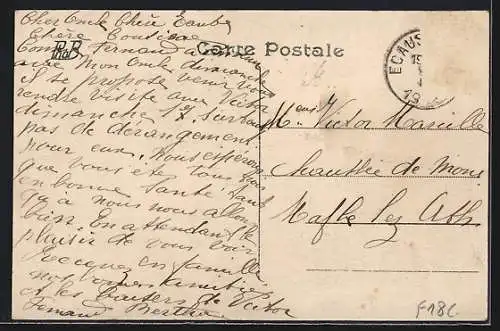 Cher Oncle Chère Tante
Chère Cousine
Comme Fernand a
avec Mon Oncle dimanche
il se propose venir vous
rendre visite avec Victor
dimanche 17. Surtout
pas de dérangement
pour eux. Nous espérons
que vous êtes tous
en bonne santé. Quant
à nous nous allons
bien. En attendant le
plaisir de vous voir
Recevez en famille
nos bonnes amitiés
et les baisers de Victor
Fernand Bertha
RMB
Carte Postale
ECAUS
19
Mr Victor Marcille
Chaussée de Mons
Maffle lez Ath
F18C